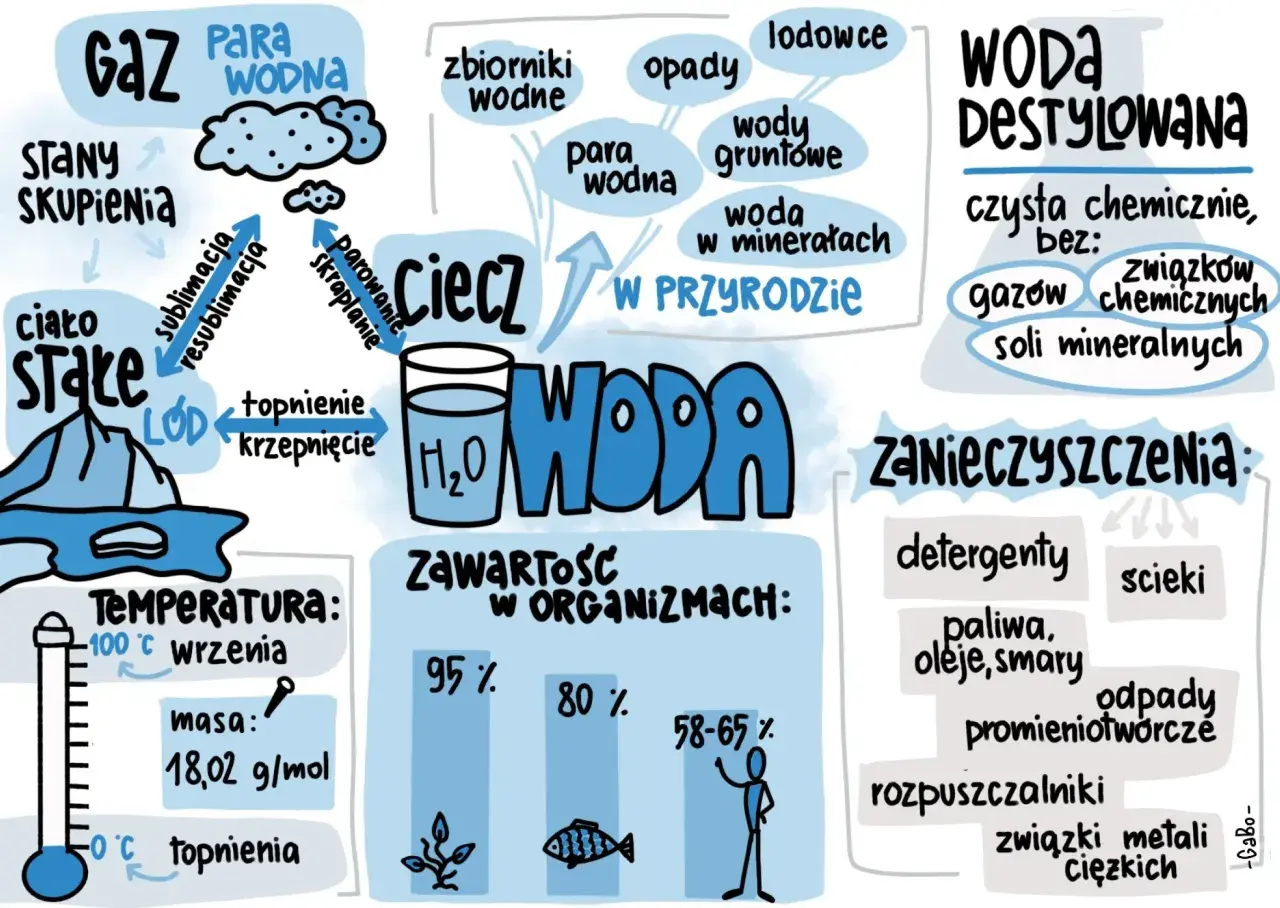 GAZ
PARA
WODNA
STANY
SKUPIENIA
sublimacja
resublimacja
parowanie
skraplanie
CIECZ
ciało
STAŁE
LÓD
topnienie
krzepnięcie
H₂O
WODA
zbiorniki
wodne
opady
lodowce
para
wodna
wody
gruntowe
woda
w minerałach
W PRZYRODZIE
WODA
DESTYLOWANA
czysta chemicznie,
bez:
gazów
związków
chemicznych
soli mineralnych
TEMPERATURA:
100 °C
wrzenia
masa:
18,02 g/mol
0 °C
topnienia
ZAWARTOŚĆ
W ORGANIZMACH:
95 %
80 %
58-65 %
ZANIECZYSZCZENIA:
detergenty
ścieki
paliwa,
oleje, smary
odpady
promieniotwórcze
rozpuszczalniki
związki metali
ciężkich
-GaBo-